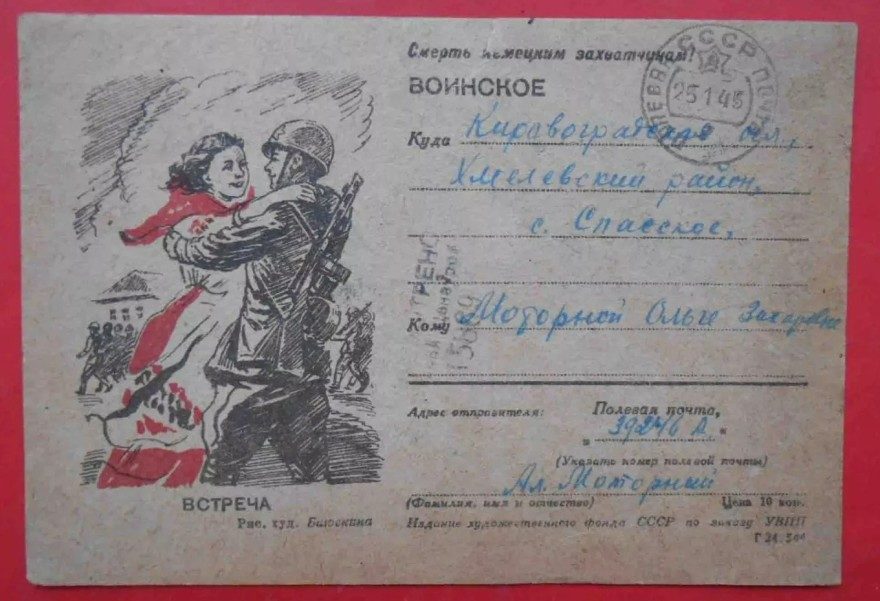 Смерть немецким захватчикам!
ВОИНСКОЕ
СССР ПОЧТА
ПОЛЕВАЯ
25 1 45
Куда Кировоградская обл,
Хмелевский район,
с. Спасское,
Кому Моторной Ольге Захаровне
15689
Адрес отправителя: Полевая почта,
„ 39246 А “
(Указать номер полевой почты)
Ал. Моторный
(Фамилия, имя и отчество) Цена 10 коп.
Издание художественного фонда СССР по заказу УВПП
Г 24.
ВСТРЕЧА
Рис. худ.